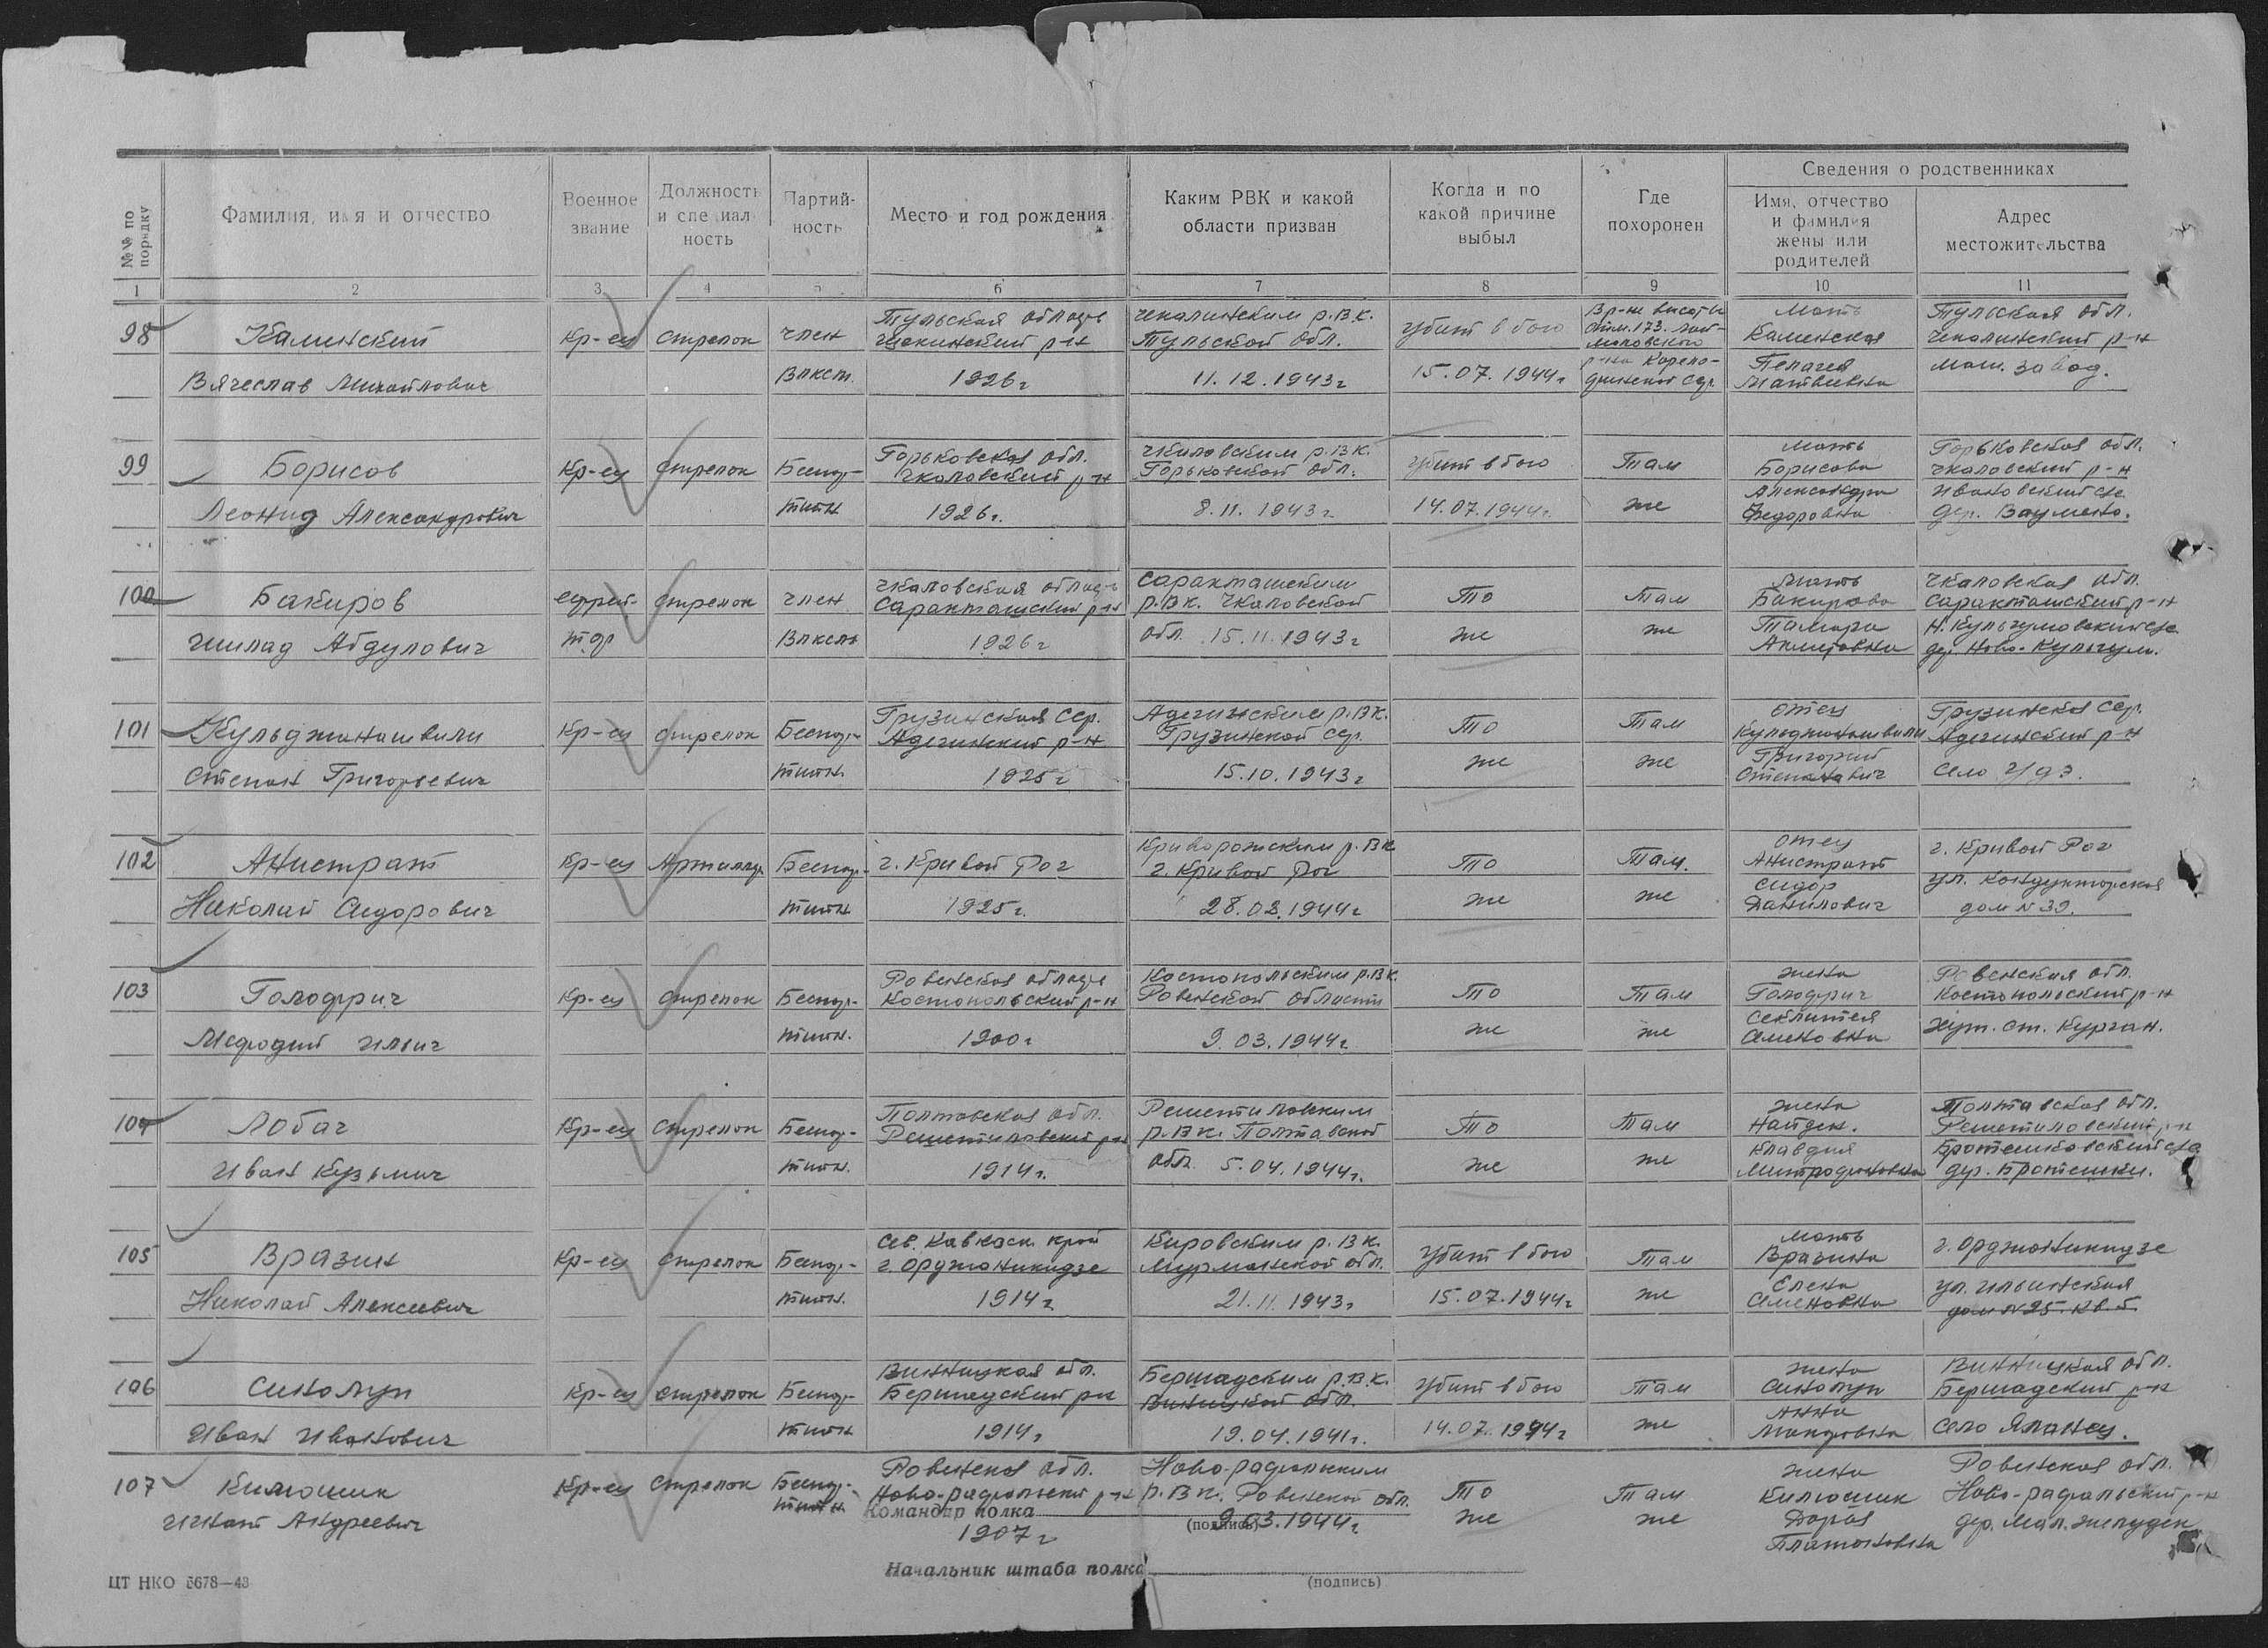 №№ по порядку
Фамилия, имя и отчество
Военное звание
Должность и специальность
Партийность
Место и год рождения
Каким РВК и какой области призван
Когда и по какой причине выбыл
Где похоронен
Сведения о родственниках
Имя, отчество и фамилия жены или родителей
Адрес местожительства
1 2 3 4 5 6 7 8 9 10 11
98 Каминский Вячеслав Михайлович
Кр-ец стрелок член ВЛКСМ
Тульская область
1926г
Чекалинским р.В.К. Тульской обл. 11.12.1943г
убит в бою 15.07.1944г
В р-не высоты
Мать Каминская Пелагея Матвеевна
Тульская обл. Чекалинский р-н маш. завод.
99 Борисов Леонид Александрович
Кр-ец стрелок Беспар-тийн
Горьковская обл. Чкаловский р-н 1926г.
Чкаловским р.В.К. Горьковской обл. 8.11.1943г
убит в бою 14.07.1944г.
Там же
мать Борисова Александра Федоровна
Горьковская обл. Чкаловский р-н Ивановский с/с
100 Бакиров Абдулович
ефрей-тор стрелок член ВЛКСМ
Чкаловская область Саракташский р-н 1926г
Саракташским р.В.К. Чкаловской обл. 15.11.1943г
То же
Там же
мать Бакирова
Чкаловская обл. Саракташский р-н
101 Кульджанашвили Степан Григорьевич
Кр-ец стрелок Беспар-тийн.
Грузинская ССР. 1925г
р.В.К. Грузинской ССР 15.10.1943г
То же
Там же
отец Кульджанашвили Григорий Степанович
Грузинская ССР. село
102 Анистрат Николай Сидорович
Кр-ец Артиллер Беспар-тийн
г. Кривой Рог 1925г.
Криворожским р.В.К. г. Кривой Рог
То же
Там. же
отец Анистрат Сидор Данилович
г. Кривой Рог ул. Кондукторская
103 Голодрич Мефодий Ильич
Кр-ец стрелок Беспар-тийн.
Ровенская область Костопольский р-н 1900г
Костопольским р.В.К. Ровенской области 9.03.1944г
То же
Там же
жена Голодрич Семеновна
Ровенская обл. Костопольский р-н хут. ст. Курган.
104 Лобач Иван Кузьмич
Кр-ец стрелок Беспар-тийн.
Полтавская обл. Решетиловский р-н 1914г.
Решетиловским р.В.К. Полтавской обл. 5.04.1944г.
То же
Там же
жена Клавдия
Полтавская обл. Решетиловский р-н Братешковский с/с дер. Братешки.
105 Вразин Николай Алексеевич
Кр-ец стрелок Беспар-тийн.
Сев. Кавказск. край г. Орджоникидзе 1914г
Кировским р.В.К. Мурманской обл. 21.11.1943г
убит в бою 15.07.1944г
Там же
мать Вразина Елена Семеновна
г. Орджоникидзе ул. Ильинская дом №25. кв 5.
106 Иван Иванович
Кр-ец стрелок Беспар-тийн
Винницкая обл. Бершадский р-н 1914г
Бершадским р.В.К. Виницкой обл. 19.04.1941г.
убит в бою 14.07.1944г
Там же
жена Анна
Винницкая обл. Бершадский р-н село Яланец.
107 Килюшик Игнат Андреевич
Кр-ец стрелок Беспар-тийн
Ровенская обл. 1907г
р.В.К. Ровенской обл. 9.03.1944г
То же
Там же
жена Килюшик Платоновна
Ровенская обл.
Командир полка
(подпись)
Начальник штаба полка
(подпись)
ЦТ НКО 5678—43